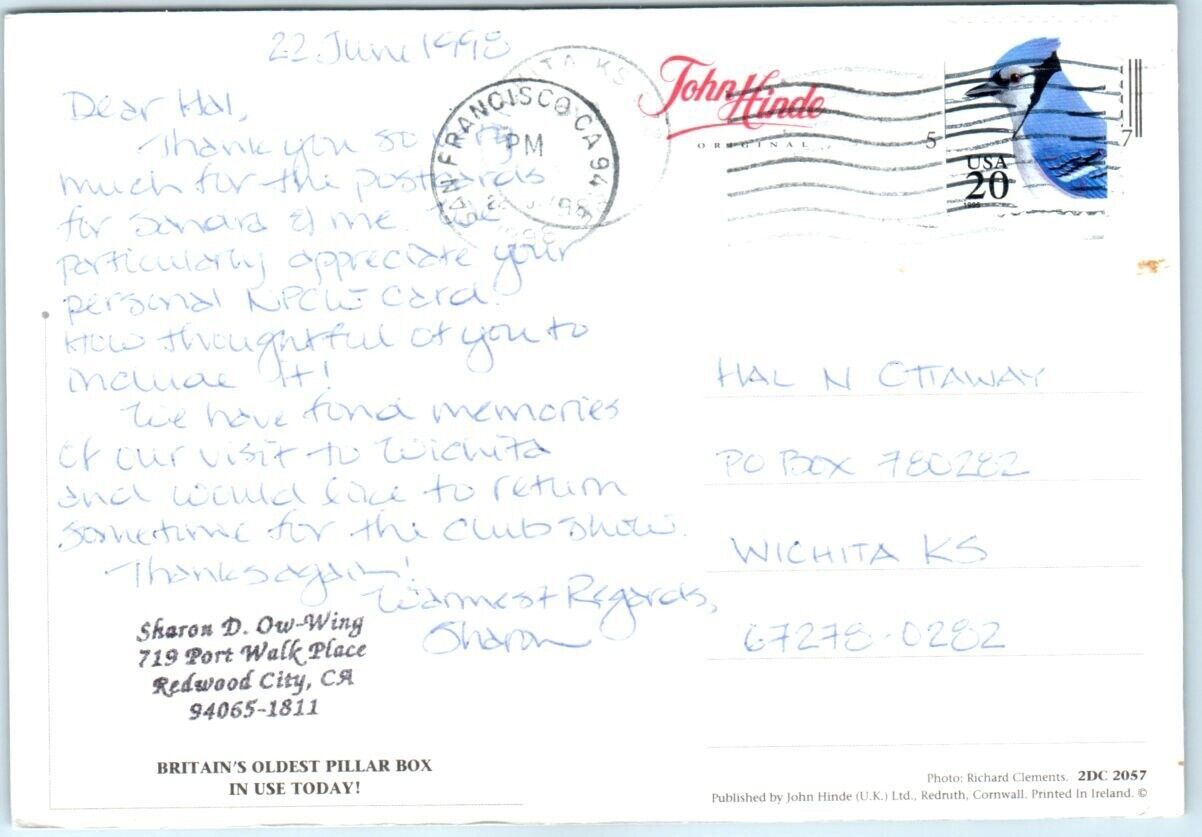 22 June 1998
Dear Hal,
Thank you so very
much for the postcards
for Sandra & me. We
particularly appreciate your
personal NPCW card.
How thoughtful of you to
include it!
We have fond memories
of our visit to Wichita
and would like to return
sometime for the club show.
Thanks again!
Warmest Regards,
Sharon
Sharon D. Ow-Wing
719 Port Walk Place
Redwood City, CA
94065-1811
BRITAIN'S OLDEST PILLAR BOX
IN USE TODAY!
WICHITA KS
1998
SAN FRANCISCO CA 94
PM
John Hinde
ORIGINAL
5
7
USA
20
1996
HAL N OTTAWAY
PO BOX 780282
WICHITA KS
67278-0282
Photo: Richard Clements. 2DC 2057
Published by John Hinde (U.K.) Ltd., Redruth, Cornwall. Printed in Ireland. ©